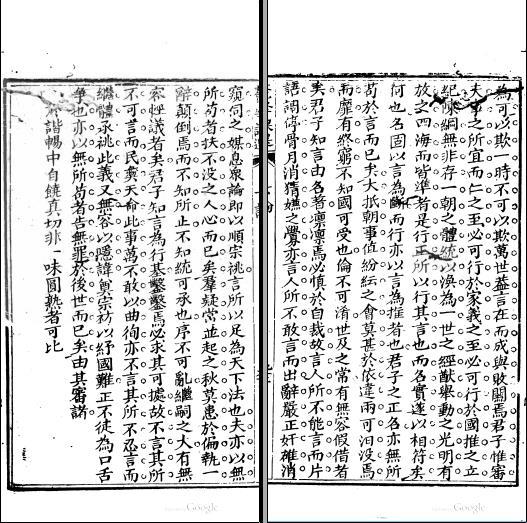 為可以欺一時不可以欺萬世蓋言在而成與敗關焉君子惟審
夫事之所宜而仁之至必可行於家義之至必可行於國推之立
紀陳綱無非存一朝之體統以渙為一世之經猷舉動之光明有
放之四海而皆準者是行正所以行其言也而名實遂以相符矣
何也名固以言為斷而行亦以言為推者也君子之正名亦無所
苟於言而已矣大抵朝事值紛紜之會莫甚於依違兩可汨沒焉
而靡有終窮不知國可受也倫不可淆世及之常有無容假借者
矣君子知言由名著凛凛焉必慎於自裁故言人所不能言而片
語調停骨月消猜嫌之釁亦言人所不敢言而出辭嚴正奸雄消
窺伺之媒息衆論即以順宗祧言所以足為天下法也夫亦以無
所苟者扶不沒之人心而已矣羣疑常並起之秋莫患於偏執一
辭顛倒焉而不知所止不知統可承也序不可亂繼嗣之大有無
容輕議者矣君子知言為行基鑿鑿焉必求其可據故不言其所
不可言而民彝天命此事萬不敢以曲徇亦不言其所不忍言而
繼體承祧此義又無容以隱諱奠宗祊以紓國難正不徒為口舌
爭也亦以無所苟者告無罪於後世而已矣由其審諸
諧暢中自饒真切非一味圓熟者可比
Google
Google